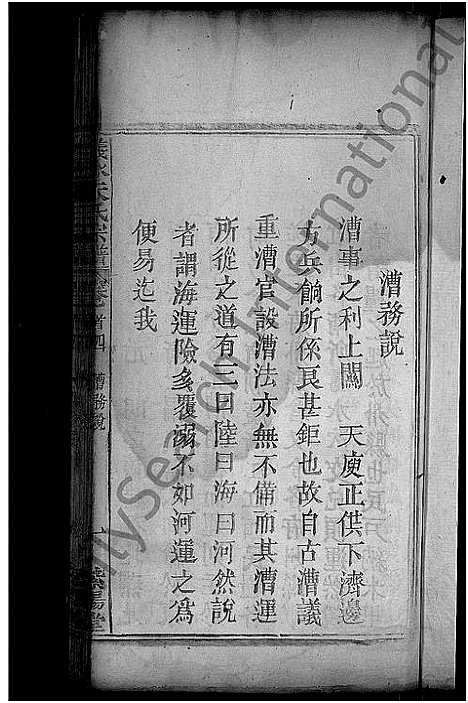 漕務說
漕事之利上關　天庾正供下濟邊
方兵餉所係良甚鉅也故自古漕議
重漕官設漕法亦無不備而其漕運
所從之道有三曰陸曰海曰河然說
者謂海運險多覆溺不如河運之為
便易迄我
氏宗譜
首四
漕務說
堂
International